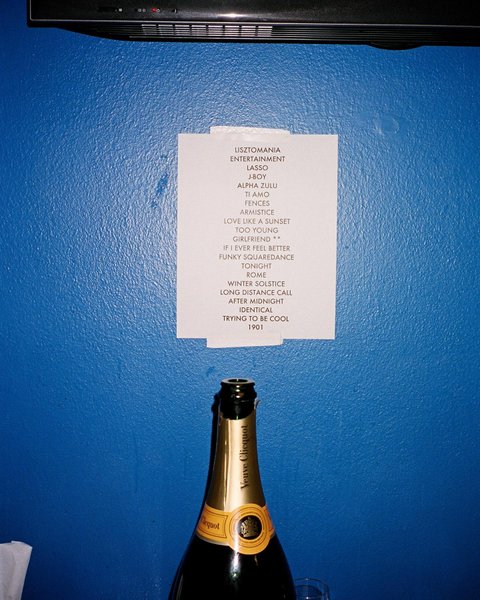 LISZTOMANIA
ENTERTAINMENT
LASSO
J-BOY
ALPHA ZULU
TI AMO
FENCES
ARMISTICE
LOVE LIKE A SUNSET
TOO YOUNG
GIRLFRIEND **
IF I EVER FEEL BETTER
FUNKY SQUAREDANCE
TONIGHT
ROME
WINTER SOLSTICE
LONG DISTANCE CALL
AFTER MIDNIGHT
IDENTICAL
TRYING TO BE COOL
1901
Veuve Clicquot
Clicquot